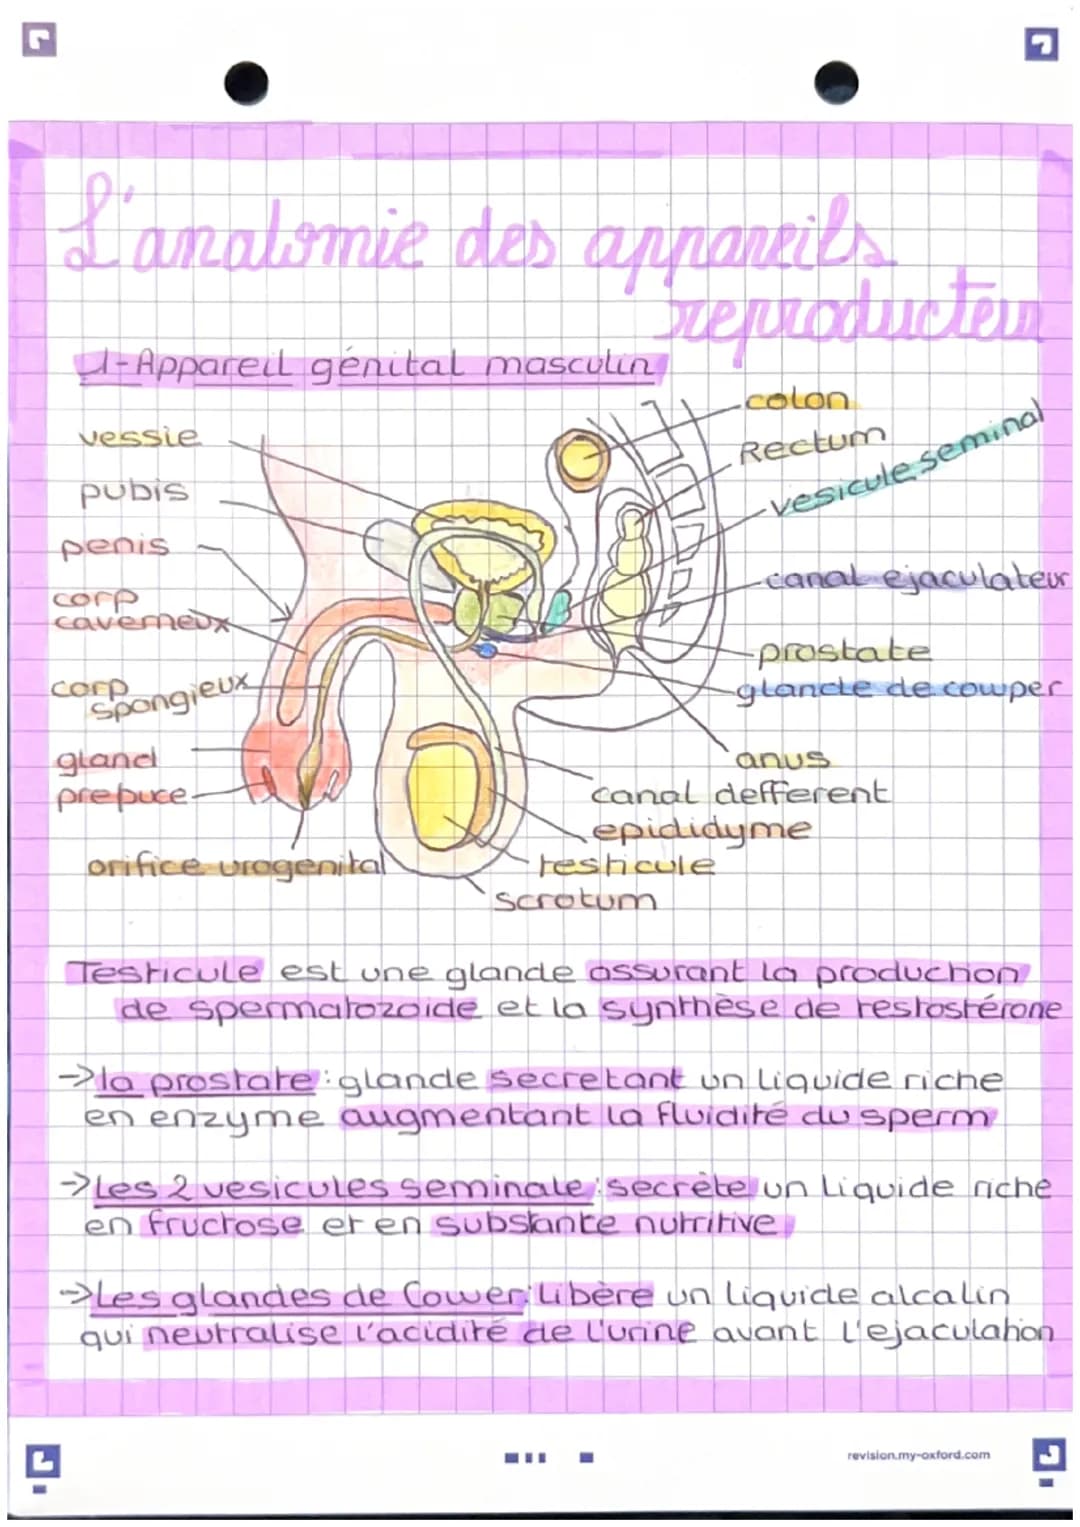 L'anatomie des appareils
reproducteur
1-Appareil génital masculin
vessie
pubis
penis
corp
caverneux
corp
spongieux
gland
prepuce
orifice urogenital
colon
Rectum
vesicule seminal
canal ejaculateur
prostate
glande de cowper
anus
canal defferent
epididyme
testicule
scrotum
Testicule est une glande assurant la production
de spermatozoide et la synthèse de testostérone
->la prostate : glande secretant un liquide riche
en enzyme augmentant la fluidité du sperm
->Les 2 vesicules seminale : secrète un liquide riche
en fructose et en substante nutritive
->Les glandes de Cower : libère un liquide alcalin
qui neutralise l'acidité de l'urine avant l'ejaculation
revision.my-oxford.com